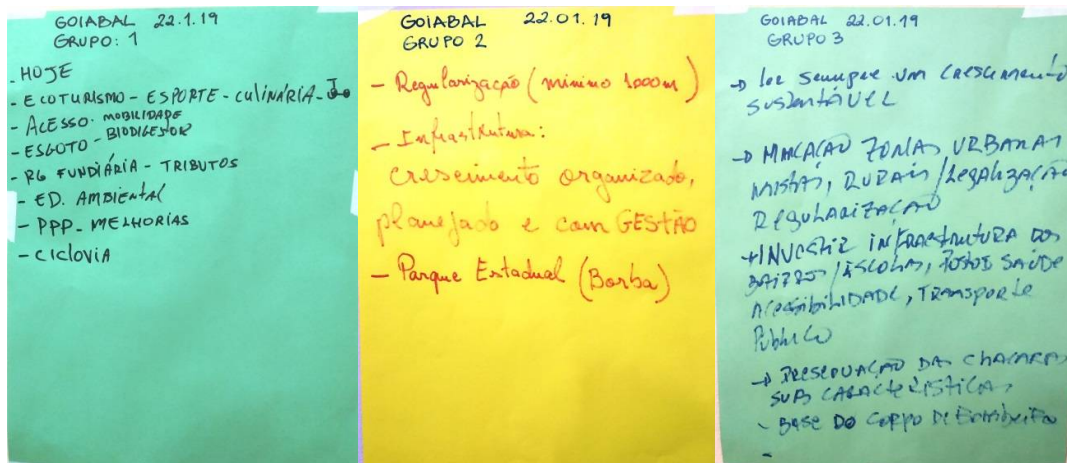 GOIABAL 22.1.19
GRUPO: 1
- HOJE
- ECOTURISMO - ESPORTE - CULINÁRIA -
- ACESSO - MOBILIDADE
- ESGOTO - BIODIGESTOR
- RG FUNDIÁRIA - TRIBUTOS
- ED. AMBIENTAL
- PPP - MELHORIAS
- CICLOVIA
GOIABAL 22.01.19
GRUPO 2
- Regularização (mínimo 1000m)
- Infraestrutura:
crescimento organizado,
planejado e com GESTÃO
- Parque Estadual (Borba)
GOIABAL 22.01.19
GRUPO 3
→ sempre um crescimento
sustentável
→ MACAÇÃO ZONAS URBANAS
MISTAS, RURAIS / Legalização
REGULARIZAÇÃO
→ INVESTIR INFRAESTRUTURA DOS
BAIRROS / ESCOLAS, POSTOS SAÚDE
ACESSIBILIDADE, TRANSPORTE
PÚBLICO
→ PRESERVAÇÃO DAS CHACARAS
SUAS CARACTERÍSTICAS
- BASE DO CORPO DE
-